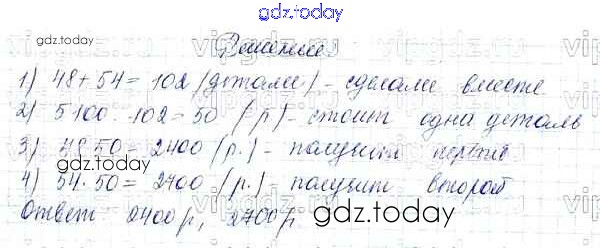 gdz.today
gdz.today
Решение
1) 48+54=102 (детали) - сделали вместе
2) 5100:102=50 (р.) - стоит одна деталь
3) 48·50=2400 (р.) - получит первый
4) 54·50=2700 (р.) - получит второй
Ответ 2400 р, 2700 р.
gdz.today
gdz.today